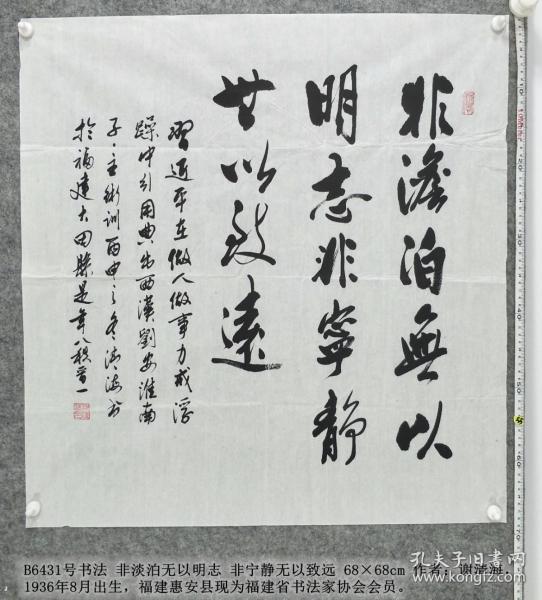 非澹泊無以
明志非寧靜
無以致遠
習近平在做人做事力戒浮
躁中引用典出西漢劉安淮南
子·主術訓丙申之冬济海书
於福建大田縣是年八秩晋一
B6431号书法 非淡泊无以明志 非宁静无以致远 68×68cm 作者：谢济海，
1936年8月出生，福建惠安县现为福建省书法家协会会员。
孔夫子旧书网